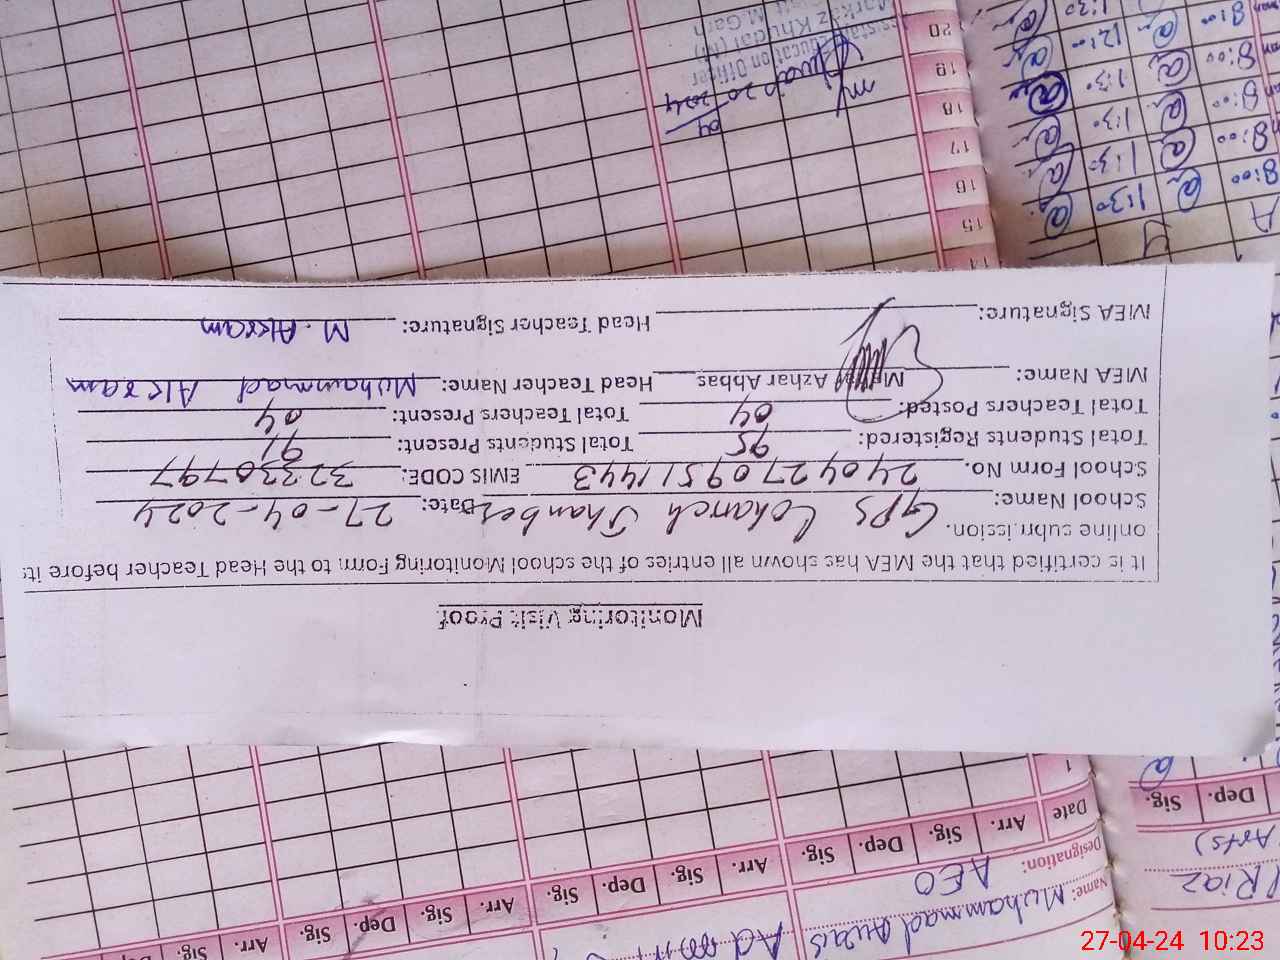 Monitoring Visit Proof
It is certified that the MEA has shown all entries of the school Monitoring Form to the Head Teacher before its
online submission.
School Name: GPS Loharreh Thanbes Date: 27-04-2024
School Form No. 24042709511443 EMIS CODE: 32330797
Total Students Registered: 95 Total Students Present: 91
Total Teachers Posted: 04 Total Teachers Present: 04
MEA Name: Azhar Abbas Head Teacher Name: Muhammad Akram
MEA Signature: Head Teacher Signature: M. Akram
Name: Muhammad Awais
Designation: AEO
Date Arr. Sig. Dep. Sig. Arr. Sig. Dep. Sig. Arr. Sig. Dep. Sig. Arr. Sig. Dep.
1
14
15
16
17
18
19
20
Riaz
Arts)
Dep. Sig.
8:00 1:30
8:00 1:30
8:00 1:30
8:00 1:30
8:00 12:00
8:00 1:30
20/04/2024
Education Officer
Markaz Khudai (M)
M.Garh
27-04-24 10:23